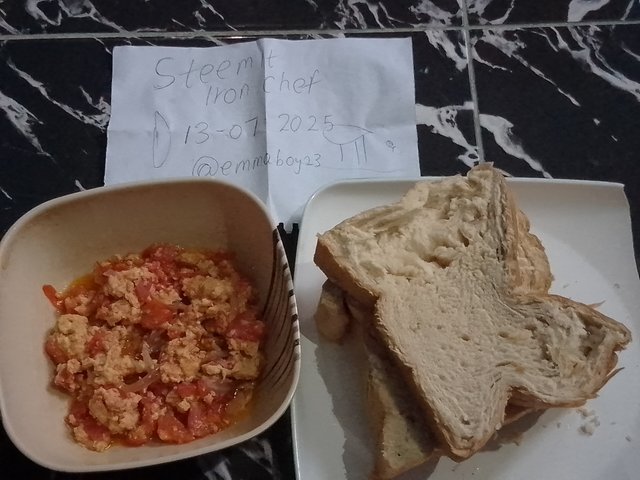 Steemit
Iron chef
13-07-2025
@emmaboy23